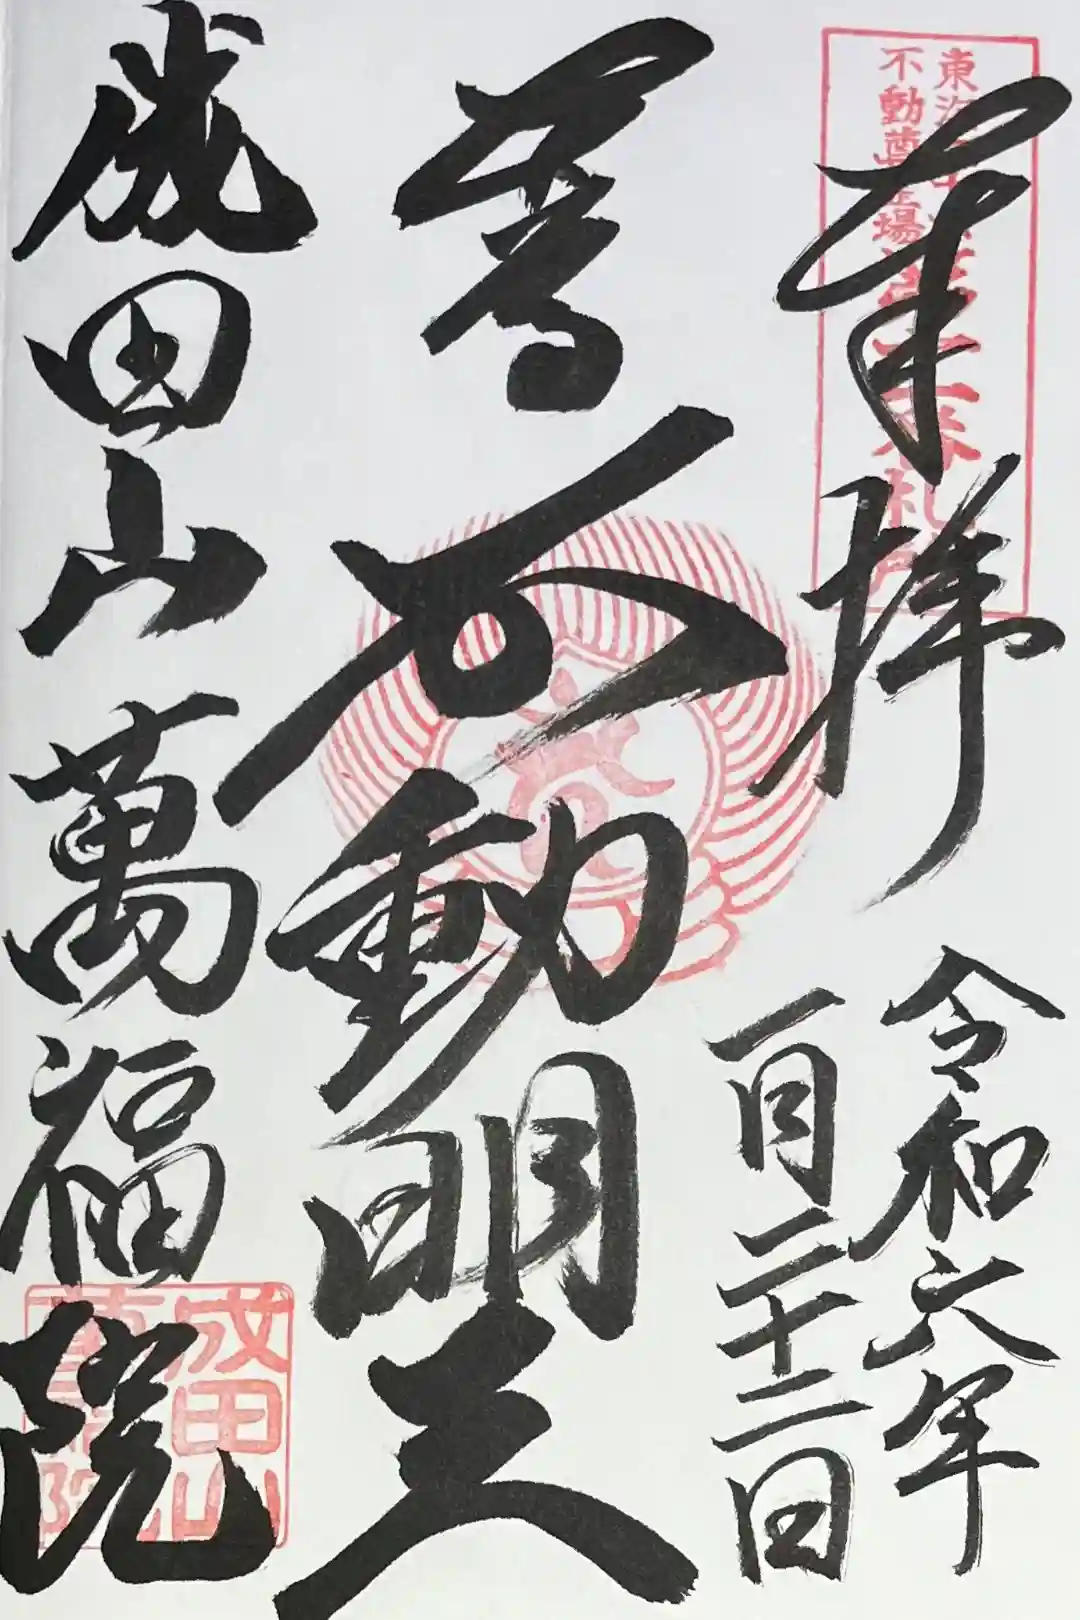 東海
不動尊霊場
番札所
奉拝
令和六年
一月二十二日
不動明王
成田山萬福院
成田山